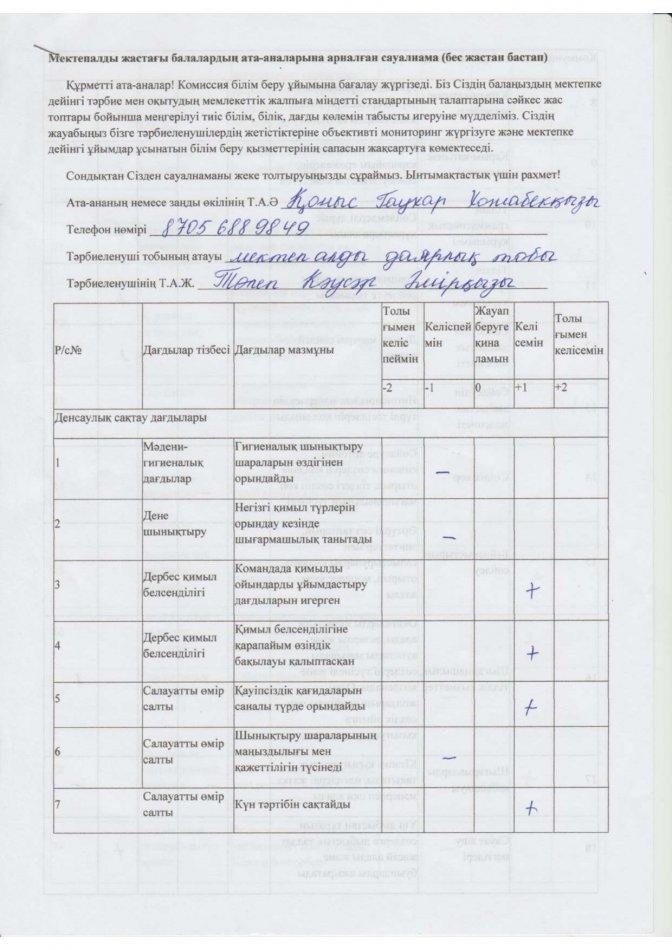 Мектепалды жастағы балалардың ата-аналарына арналған сауалнама (бес жастан бастап)
Құрметті ата-аналар! Комиссия білім беру ұйымына бағалау жүргізеді. Біз Сіздің балаңыздың мектепке
дейінгі тәрбие мен оқытудың мемлекеттік жалпыға міндетті стандартының талаптарына сәйкес жас
топтары бойынша меңгерілуі тиіс білім, білік, дағды көлемін табысты игеруіне мүдделіміз. Сіздің
жауабыңыз бізге тәрбиеленушілердің жетістіктеріне объективті мониторинг жүргізуге және мектепке
дейінгі ұйымдар ұсынатын білім беру қызметтерінің сапасын жақсартуға көмектеседі.
Сондықтан Сізден сауалнаманы жеке толтыруыңызды сұраймыз. Ынтымақтастық үшін рахмет!
Ата-ананың немесе заңды өкілінің Т.А.Ә Қоныс Гаухар Хожабекқызы
Телефон нөмірі 8705 688 9849
Тәрбиеленуші тобының атауы мектеп алды даярлық тобы
Тәрбиеленушінің Т.А.Ж. Төлеп Кәусар Әмірқызы
Р/с№ Дағдылар тізбесі Дағдылар мазмұны Толы ғымен келіс пеймін Келіспей мін Жауап беруге қина ламын Келі семін Толы ғымен келісемін
-2 -1 0 +1 +2
Денсаулық сақтау дағдылары
1 Мәдени-гигиеналық дағдылар Гигиеналық шынықтыру шараларын өздігінен орындайды –
2 Дене шынықтыру Негізгі қимыл түрлерін орындау кезінде шығармашылық танытады –
3 Дербес қимыл белсенділігі Командада қимылды ойындарды ұйымдастыру дағдыларын игерген +
4 Дербес қимыл белсенділігі Қимыл белсенділігіне қарапайым өзіндік бақылауы қалыптасқан +
5 Салауатты өмір салты Қауіпсіздік қағидаларын саналы түрде орындайды +
6 Салауатты өмір салты Шынықтыру шараларының маңыздылығы мен қажеттілігін түсінеді –
7 Салауатты өмір салты Күн тәртібін сақтайды +